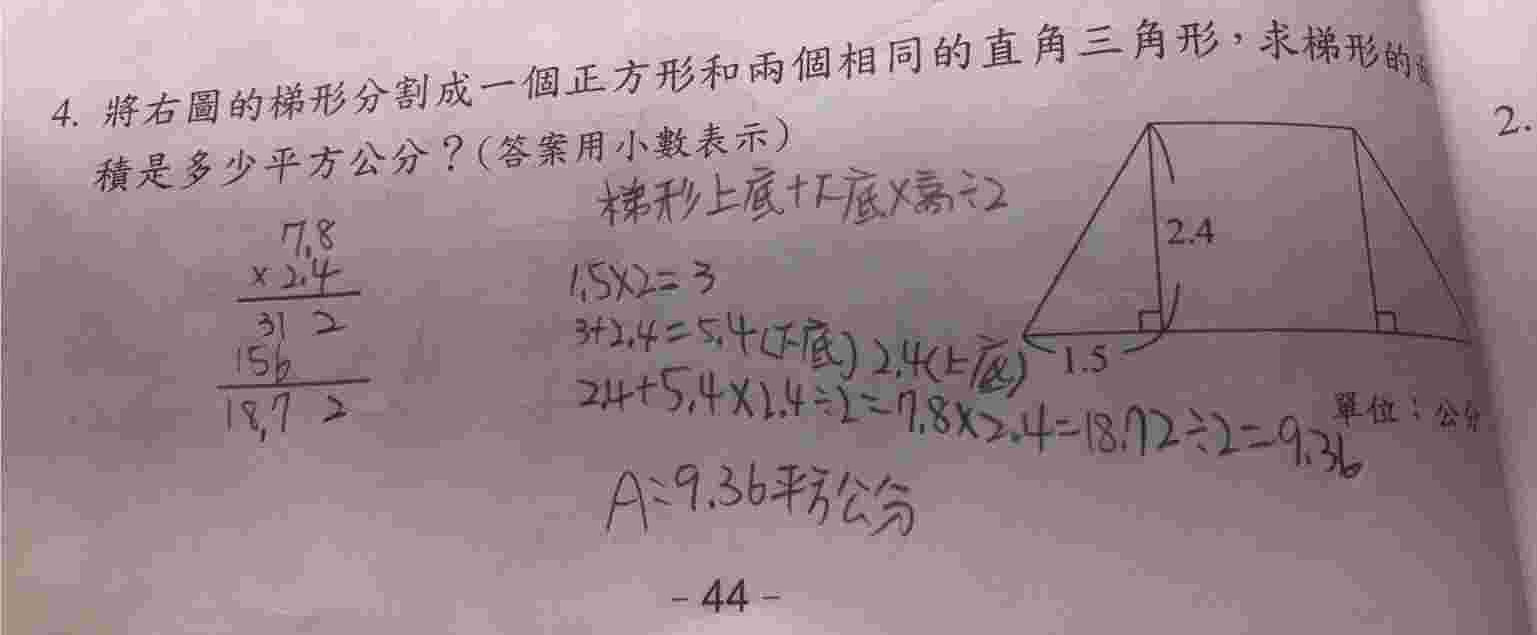 4. 將右圖的梯形分割成一個正方形和兩個相同的直角三角形，求梯形的
積是多少平方公分？(答案用小數表示)
梯形上底+下底×高÷2
7.8
×2.4
31 2
156
18,7 2
1.5×2=3
3+2.4=5.4(下底) 2.4(上底)
2.4+5.4×2.4÷2=7.8×2.4=18.72÷2=9.36
A:9.36平方公分
2.4
1.5
單位：公分
2.
- 44 -